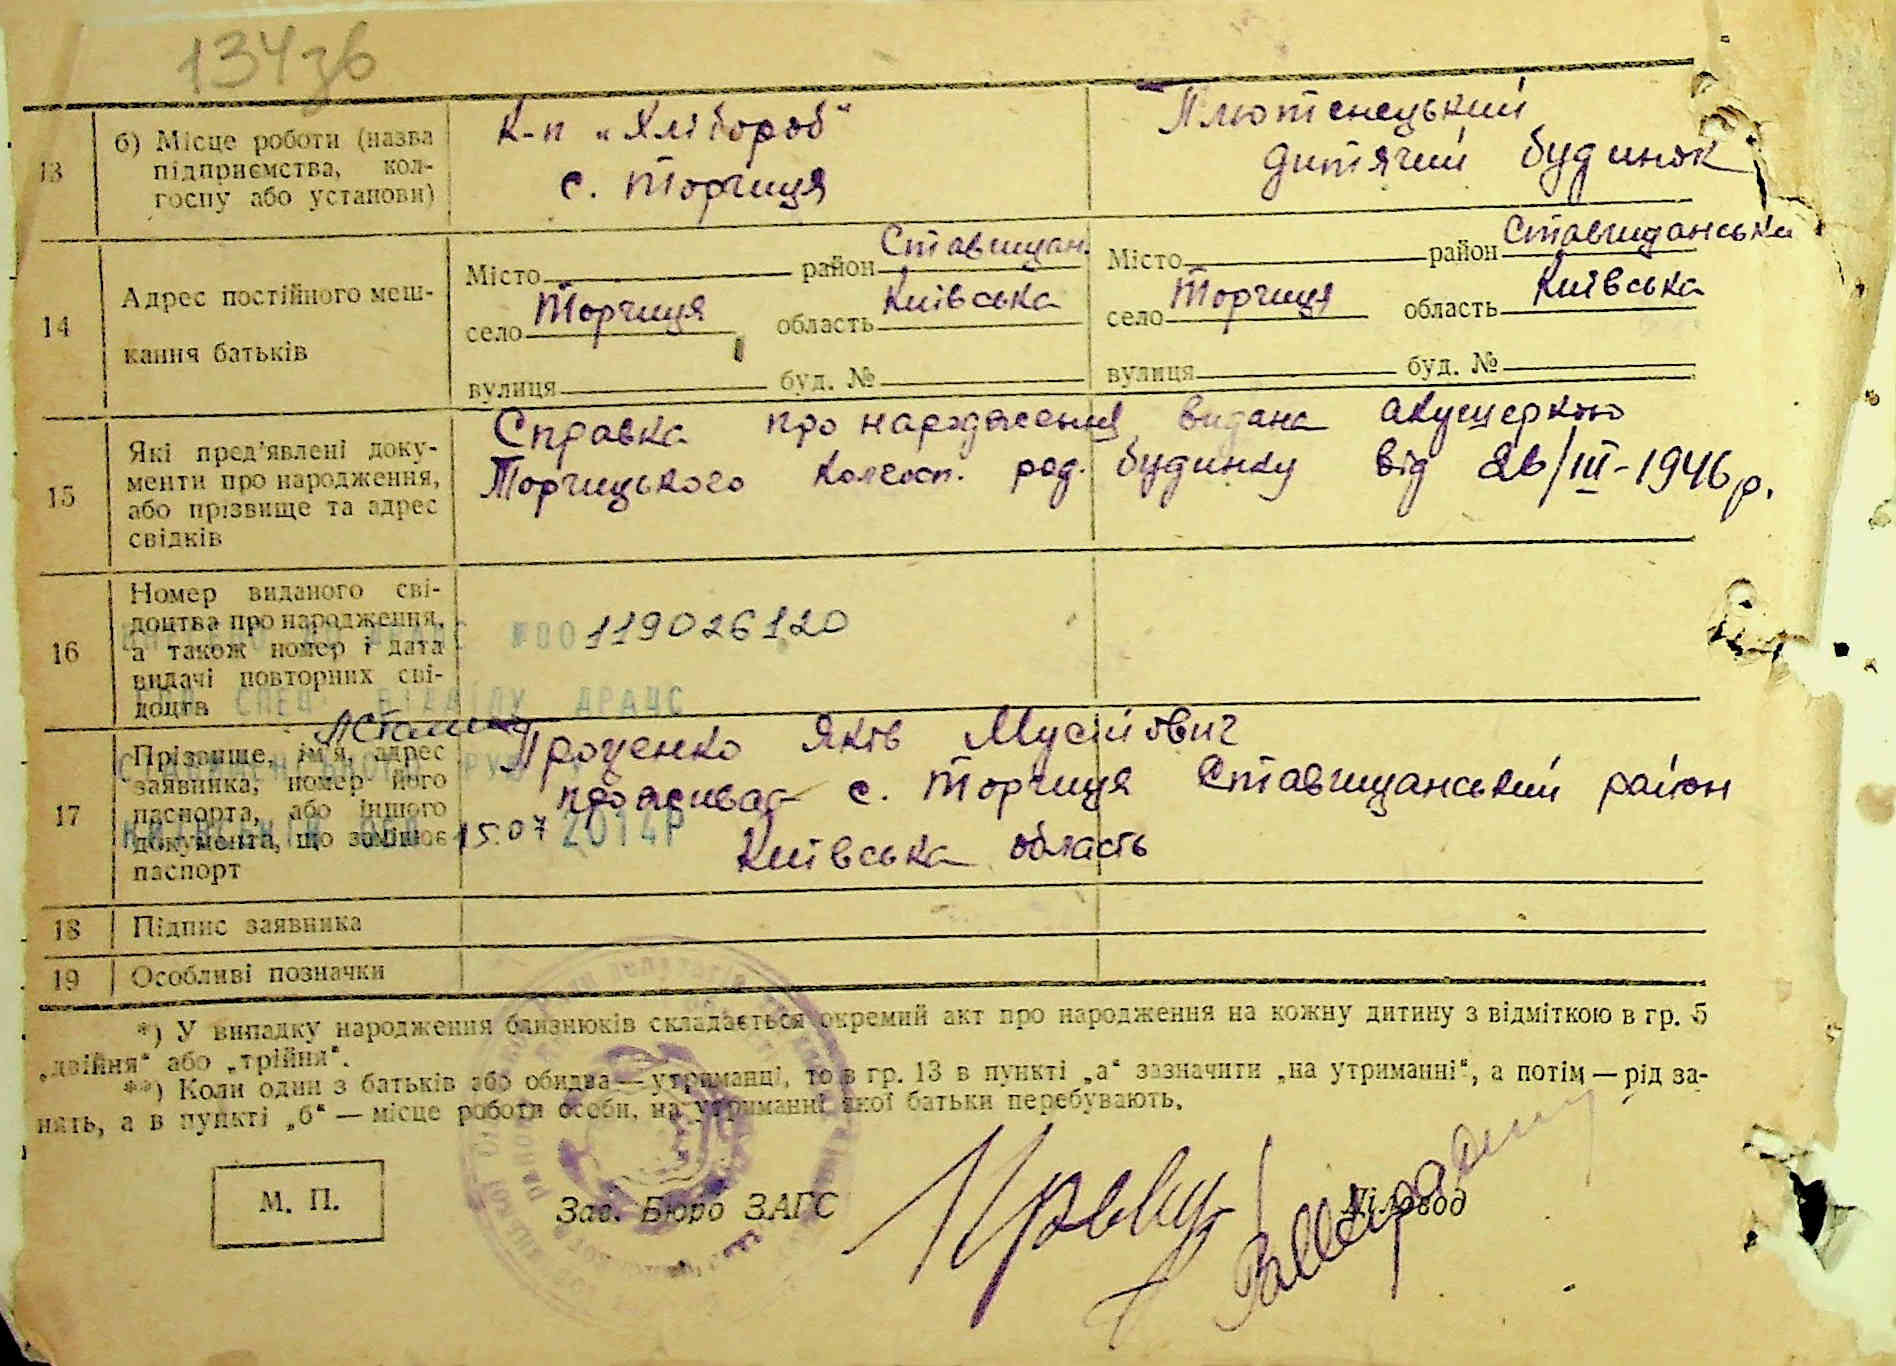 134зв
13 б) Місце роботи (назва підприємства, колгоспу або установи)
К-п „Хлібороб“
с. Торчиця
Плютенецький
дитячий будинок
14 Адрес постійного мешкання батьків
Місто район Ставищан.
село Торчиця область Київська
вулиця буд. №
Місто район Ставищанськи
село Торчиця область Київська
вулиця буд. №
15 Які пред’явлені документи про народження, або прізвище та адрес свідків
Справка про народження видана акушеркою
Торчицького колгосп. род. будинку від 26/III-1946 р.
16 Номер виданого свідоцтва про народження, а також номер і дата видачі повторних свідоцтв
№00119026120
СПЕЦ. ВІДДІЛУ ДРАЦС
17 Прізвище, ім’я, адрес заявника, номер його паспорта, або іншого документа, що замінює паспорт
15.07 2014Р
Проценко Яків Мусійович
проживає с. Торчиця Ставищанський район
Київська область
18 Підпис заявника
19 Особливі позначки
*) У випадку народження близнюків складається окремий акт про народження на кожну дитину з відміткою в гр. 5
„двійня“ або „трійня“.
**) Коли один з батьків або обидва — утриманці, то в гр. 13 в пункті „а“ зазначити „на утриманні“, а потім — рід за-
нять, а в пункті „б“ — місце роботи особи, на утриманні якої батьки перебувають.
М. П.
Зав. Бюро ЗАГС
Діловод